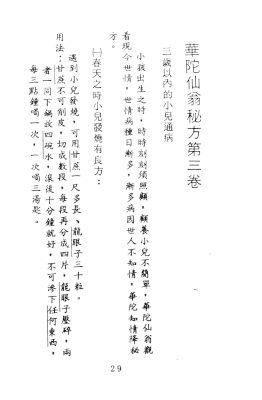 華陀仙翁秘方第三卷
三歲以內的小兒通病
小孩出生之時，時時刻刻須照顧，顧養小兒不簡單，華陀仙翁觀
看現今世情，世情病種日漸多，漸多病因世人不知情，華陀知情降秘
方。
㈠春天之時小兒發燒有良方：
遇到小兒發燒，可用甘蔗一尺多長、龍眼子三十粒。
用法：甘蔗不可削皮，切成數段，每段再分成四片，龍眼子壓碎，兩
者一同下鍋放四碗水，滾後十分鐘就好，不可滲下任何東西，
每三點鐘喝一次，一次喝三湯匙。
29